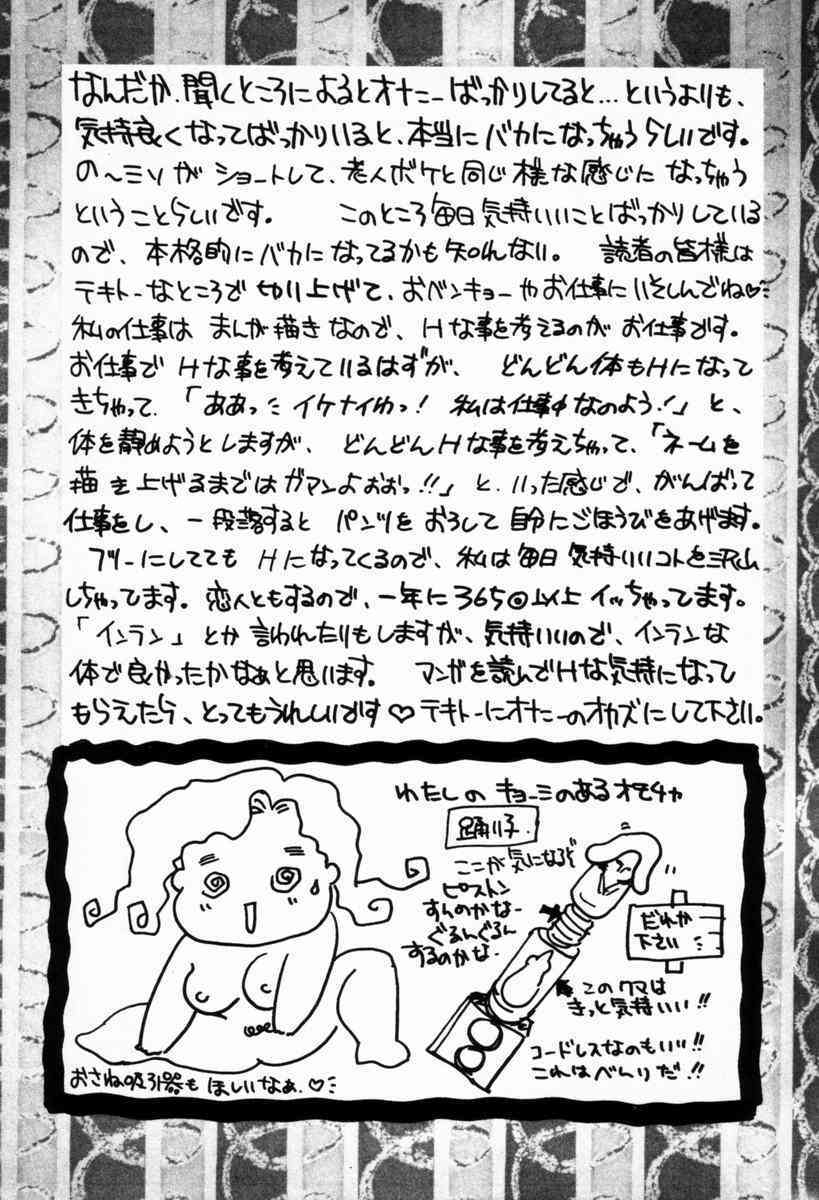 なんだか、聞くところによるとオナニーばっかりしてると…というよりも、
気持良くなってばっかりいると、本当にバカになっちゃうらしいです。
の〜ミソがショートして、老人ボケと同じ様な感じになっちゃう
ということらしいです。　このところ毎日気持いいことばっかりしている
ので、本格的にバカになってるかも知んない。　読者の皆様は
テキトーなところで切り上げて、おベンキョーやお仕事にいそしんでね♡
私の仕事はまんが描きなので、Hな事を考えるのがお仕事です。
お仕事でHな事を考えているはずが、どんどん体もHになって
きちゃって、「ああっ イケナイわっ！私は仕事中なのよう！」と、
体を静めようとしますが、どんどんHな事を考えちゃって、「ネームを
描き上げるまではガマンよおおっ!!」と、いった感じで、がんばって
仕事をし、一段落するとパンツをおろして自分にごほうびをあげます。
フリーにしててもHになってくるので、私は毎日気持いいコトを沢山
しちゃってます。恋人ともするので、一年に365回以上イッちゃってます。
「インラン」とか言われたりもしますが、気持いいので、インランな
体で良かったかなぁと思います。　マンガを読んでHな気持になって
もらえたら、とってもうれしいです♡テキトーにオナニーのオカズにして下さい。
わたしのキョーミのあるオモチャ
踊り子
ここが気になるぞ
ピストン
すんのかなー
ぐるんぐるん
するのかな
だれか
下さい
このクマは
きっと気持いい!!
コードレスなのもいい!!
これはべんりだ!!
おさね吸引器もほしいなぁ。♡